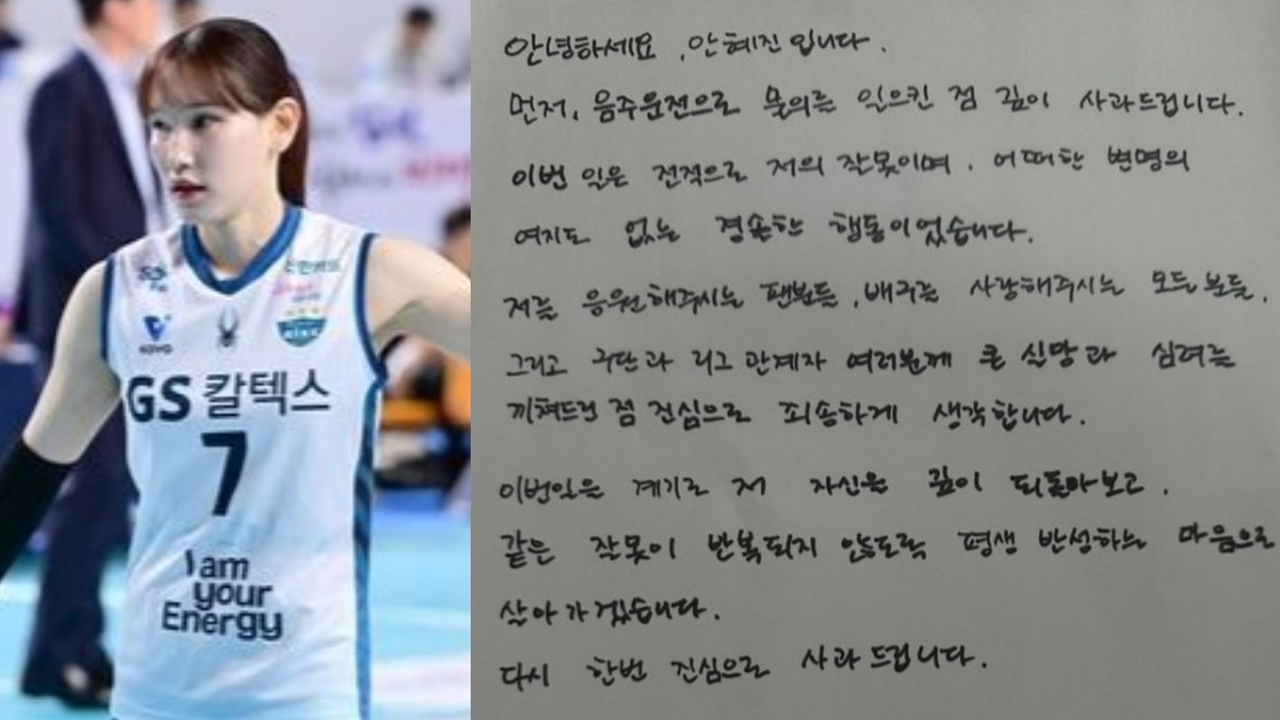 GS 칼텍스
7
I am
your
Energy
KOVO
안녕하세요, 안혜진입니다.
먼저, 음주운전으로 물의를 일으킨 점 깊이 사과드립니다.
이번 일은 전적으로 저의 잘못이며, 어떠한 변명의
여지도 없는 경솔한 행동이었습니다.
저를 응원해주시는 팬분들, 배구를 사랑해주시는 모든 분들,
그리고 구단과 리그 관계자 여러분께 큰 실망과 심려를
끼쳐드린 점 진심으로 죄송하게 생각합니다.
이번일을 계기로 저 자신을 깊이 되돌아보고,
같은 잘못이 반복되지 않도록 평생 반성하는 마음으로
살아가겠습니다.
다시 한번 진심으로 사과드립니다.